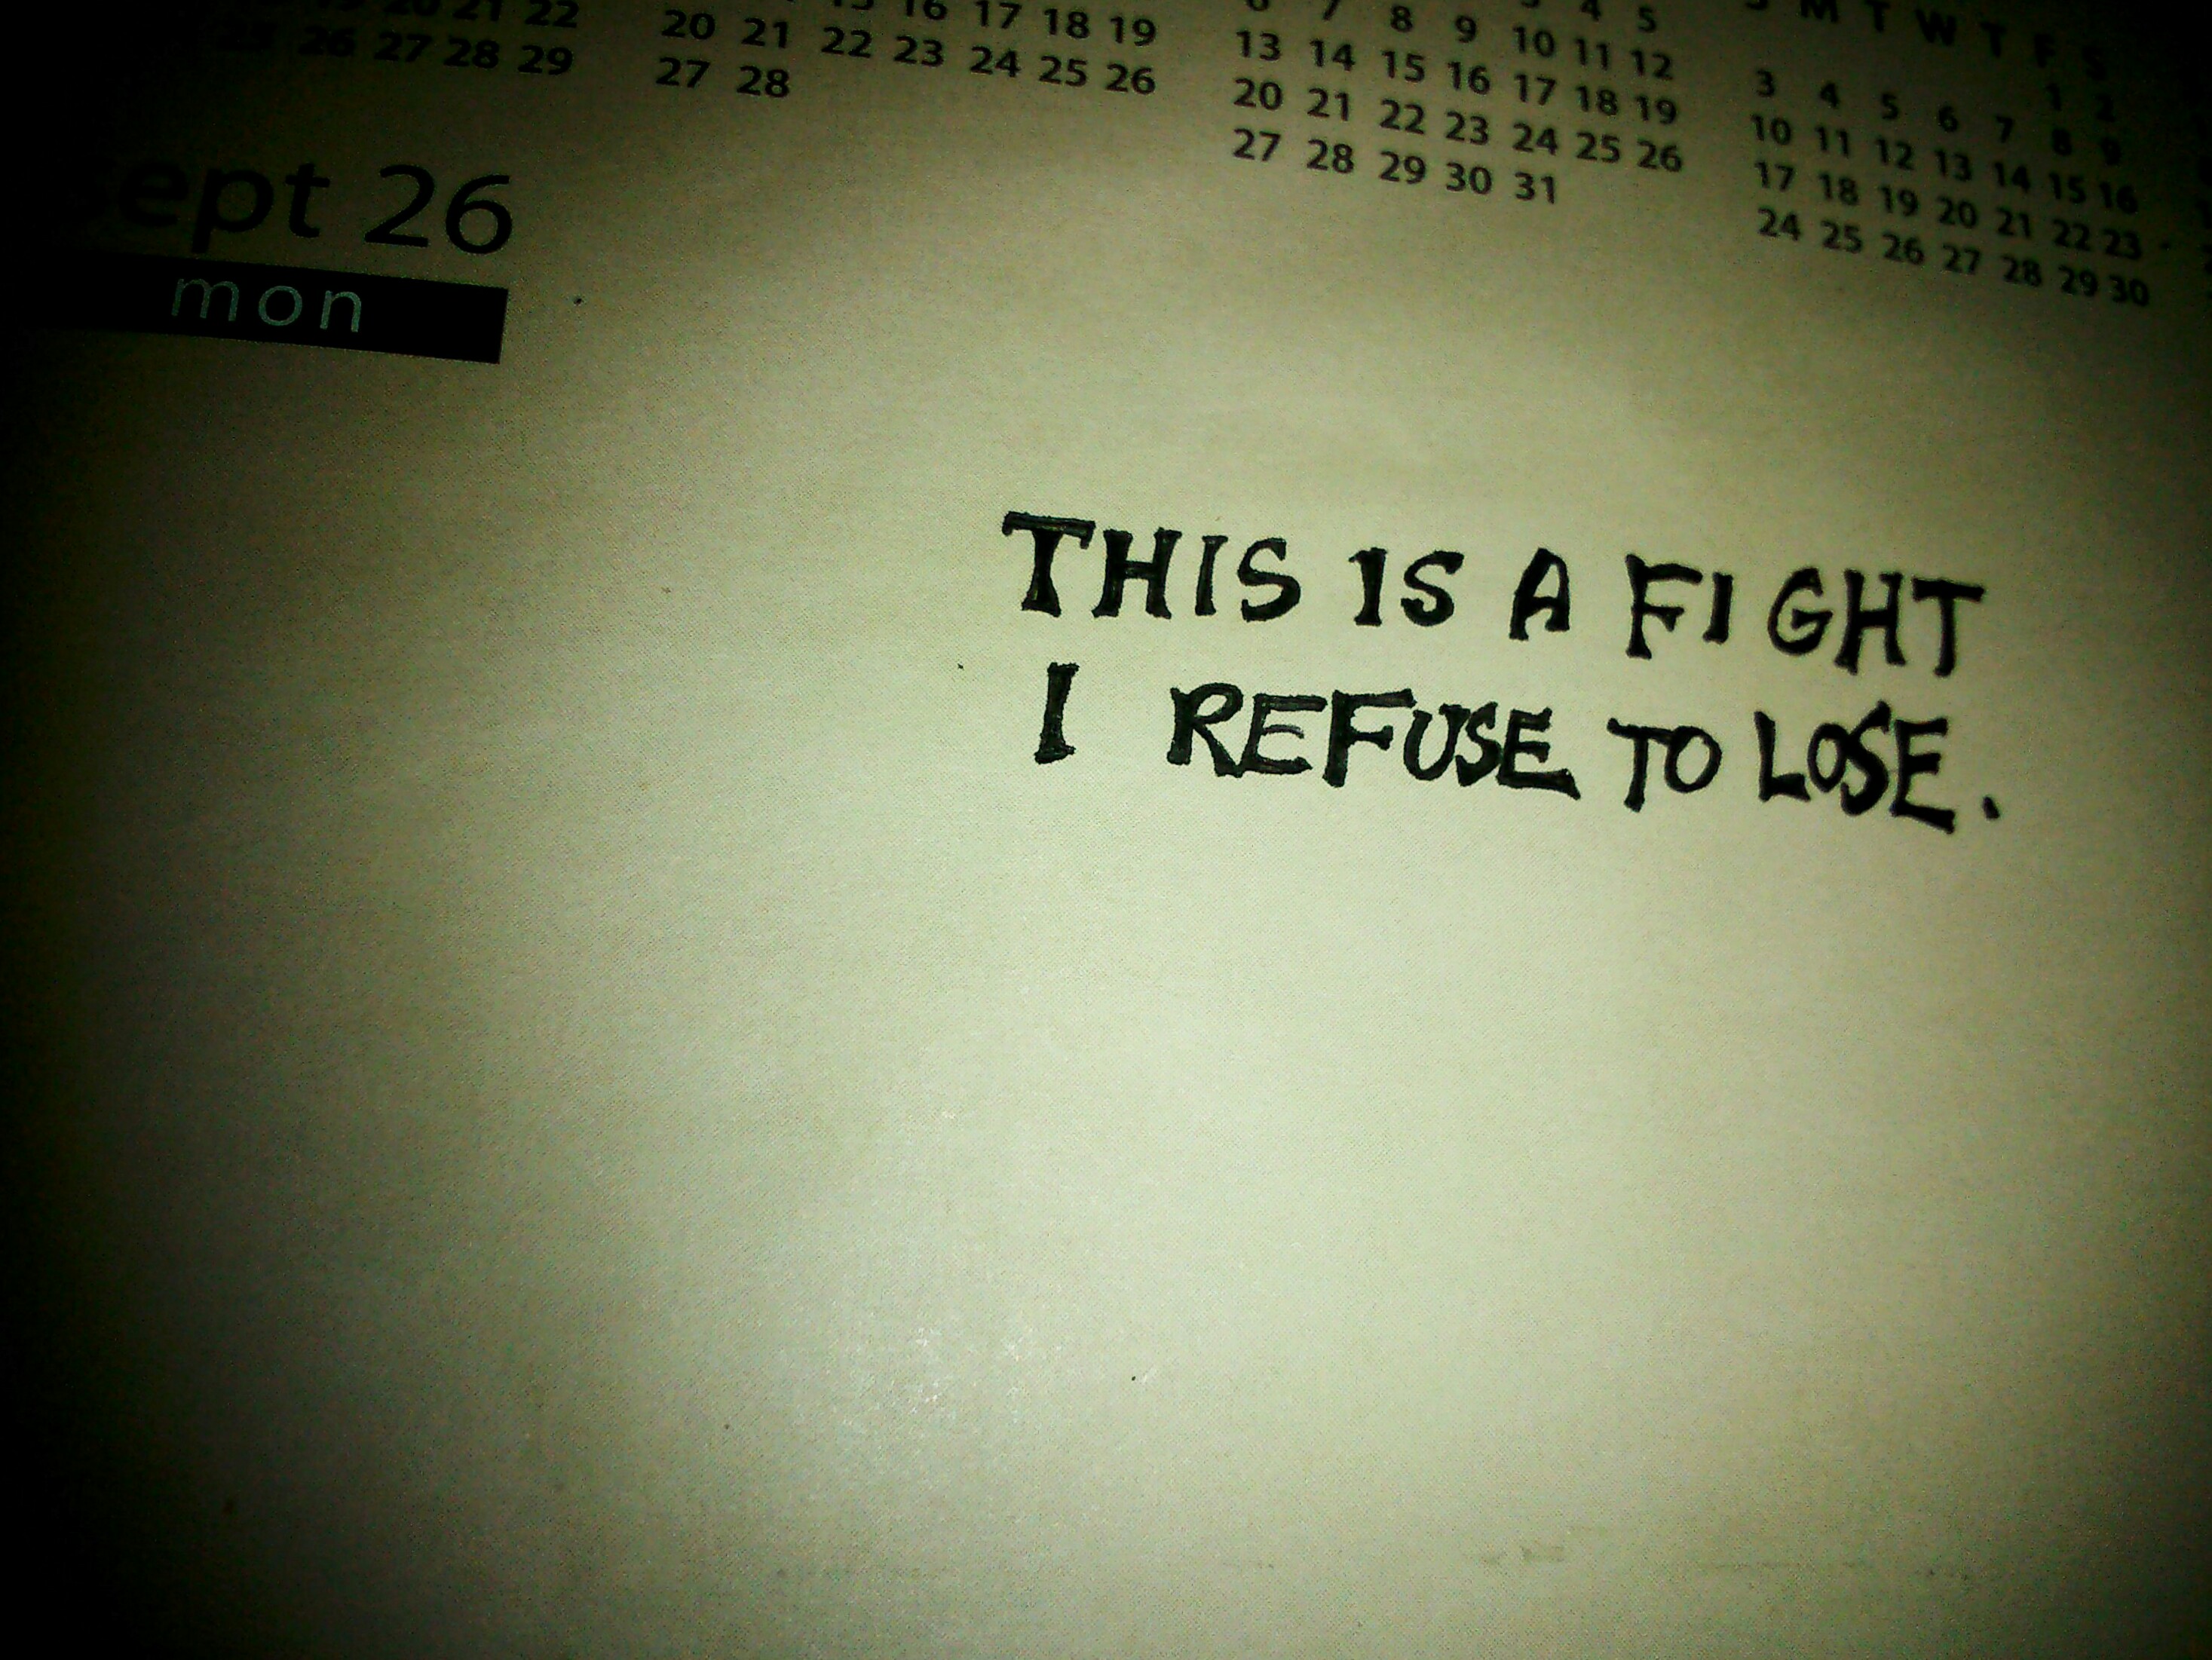 20 21 22
26 27 28 29
16 17 18 19
20 21 22 23 24 25 26
27 28
7 8 9 3 4 5
13 14 15 16 17 18 19
10 11 12
20 21 22 23 24 25 26
27 28 29 30 31
M T W T F S
1 2
3 4 5 6 7 8 9
10 11 12 13 14 15 16
17 18 19 20 21 22 23
24 25 26 27 28 29 30
sept 26
mon
THIS IS A FIGHT
I REFUSE TO LOSE.